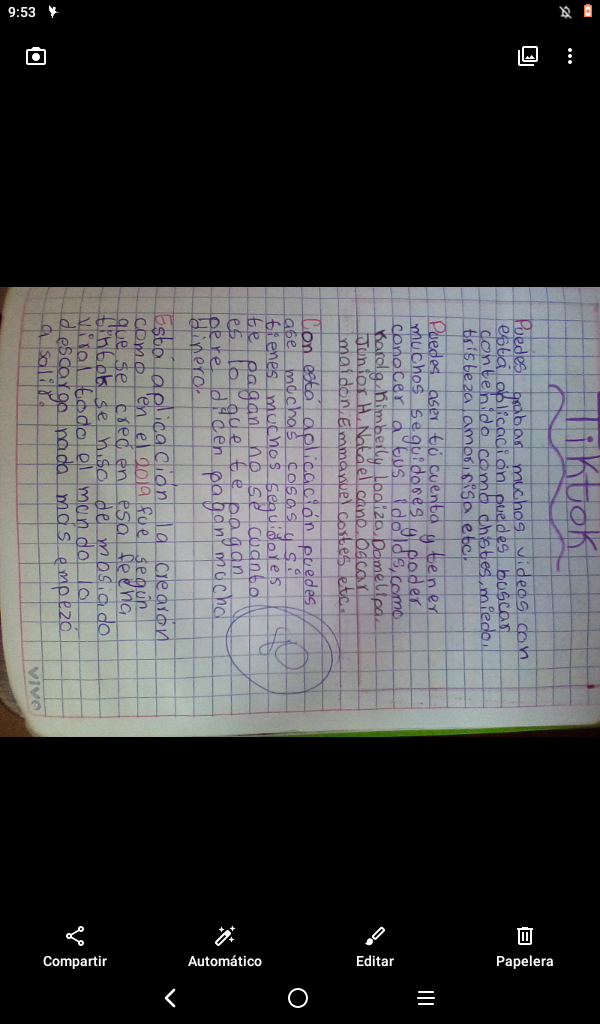 9:53
Tiktok
Puedes grabar muchos videos con
está aplicación puedes buscar
contenido como chistes, miedo,
tristeza, amor, risa etc.
Puedes aser tú cuenta y tener
muchos seguidores y poder
conocer a tus idolos, como
Kimberly Loaiza, Domelipa,
Junior H, Natael cano, Oscar
maidon, Emmanuel cortes etc.
Con está aplicación puedes
ase muchas cosas y si
tienes muchos seguidores
te pagan no se cuanto
es lo que te pagan
pere dicen pagan mucho
dinero.
Está aplicación la crearón
como en el 2019 fue según
que se creó en esa fecha,
tintok se hiso de masiado
viral todo el mundo lo
descarga nada mas empezó
a salir.
VIVO
Compartir
Automático
Editar
Papelera